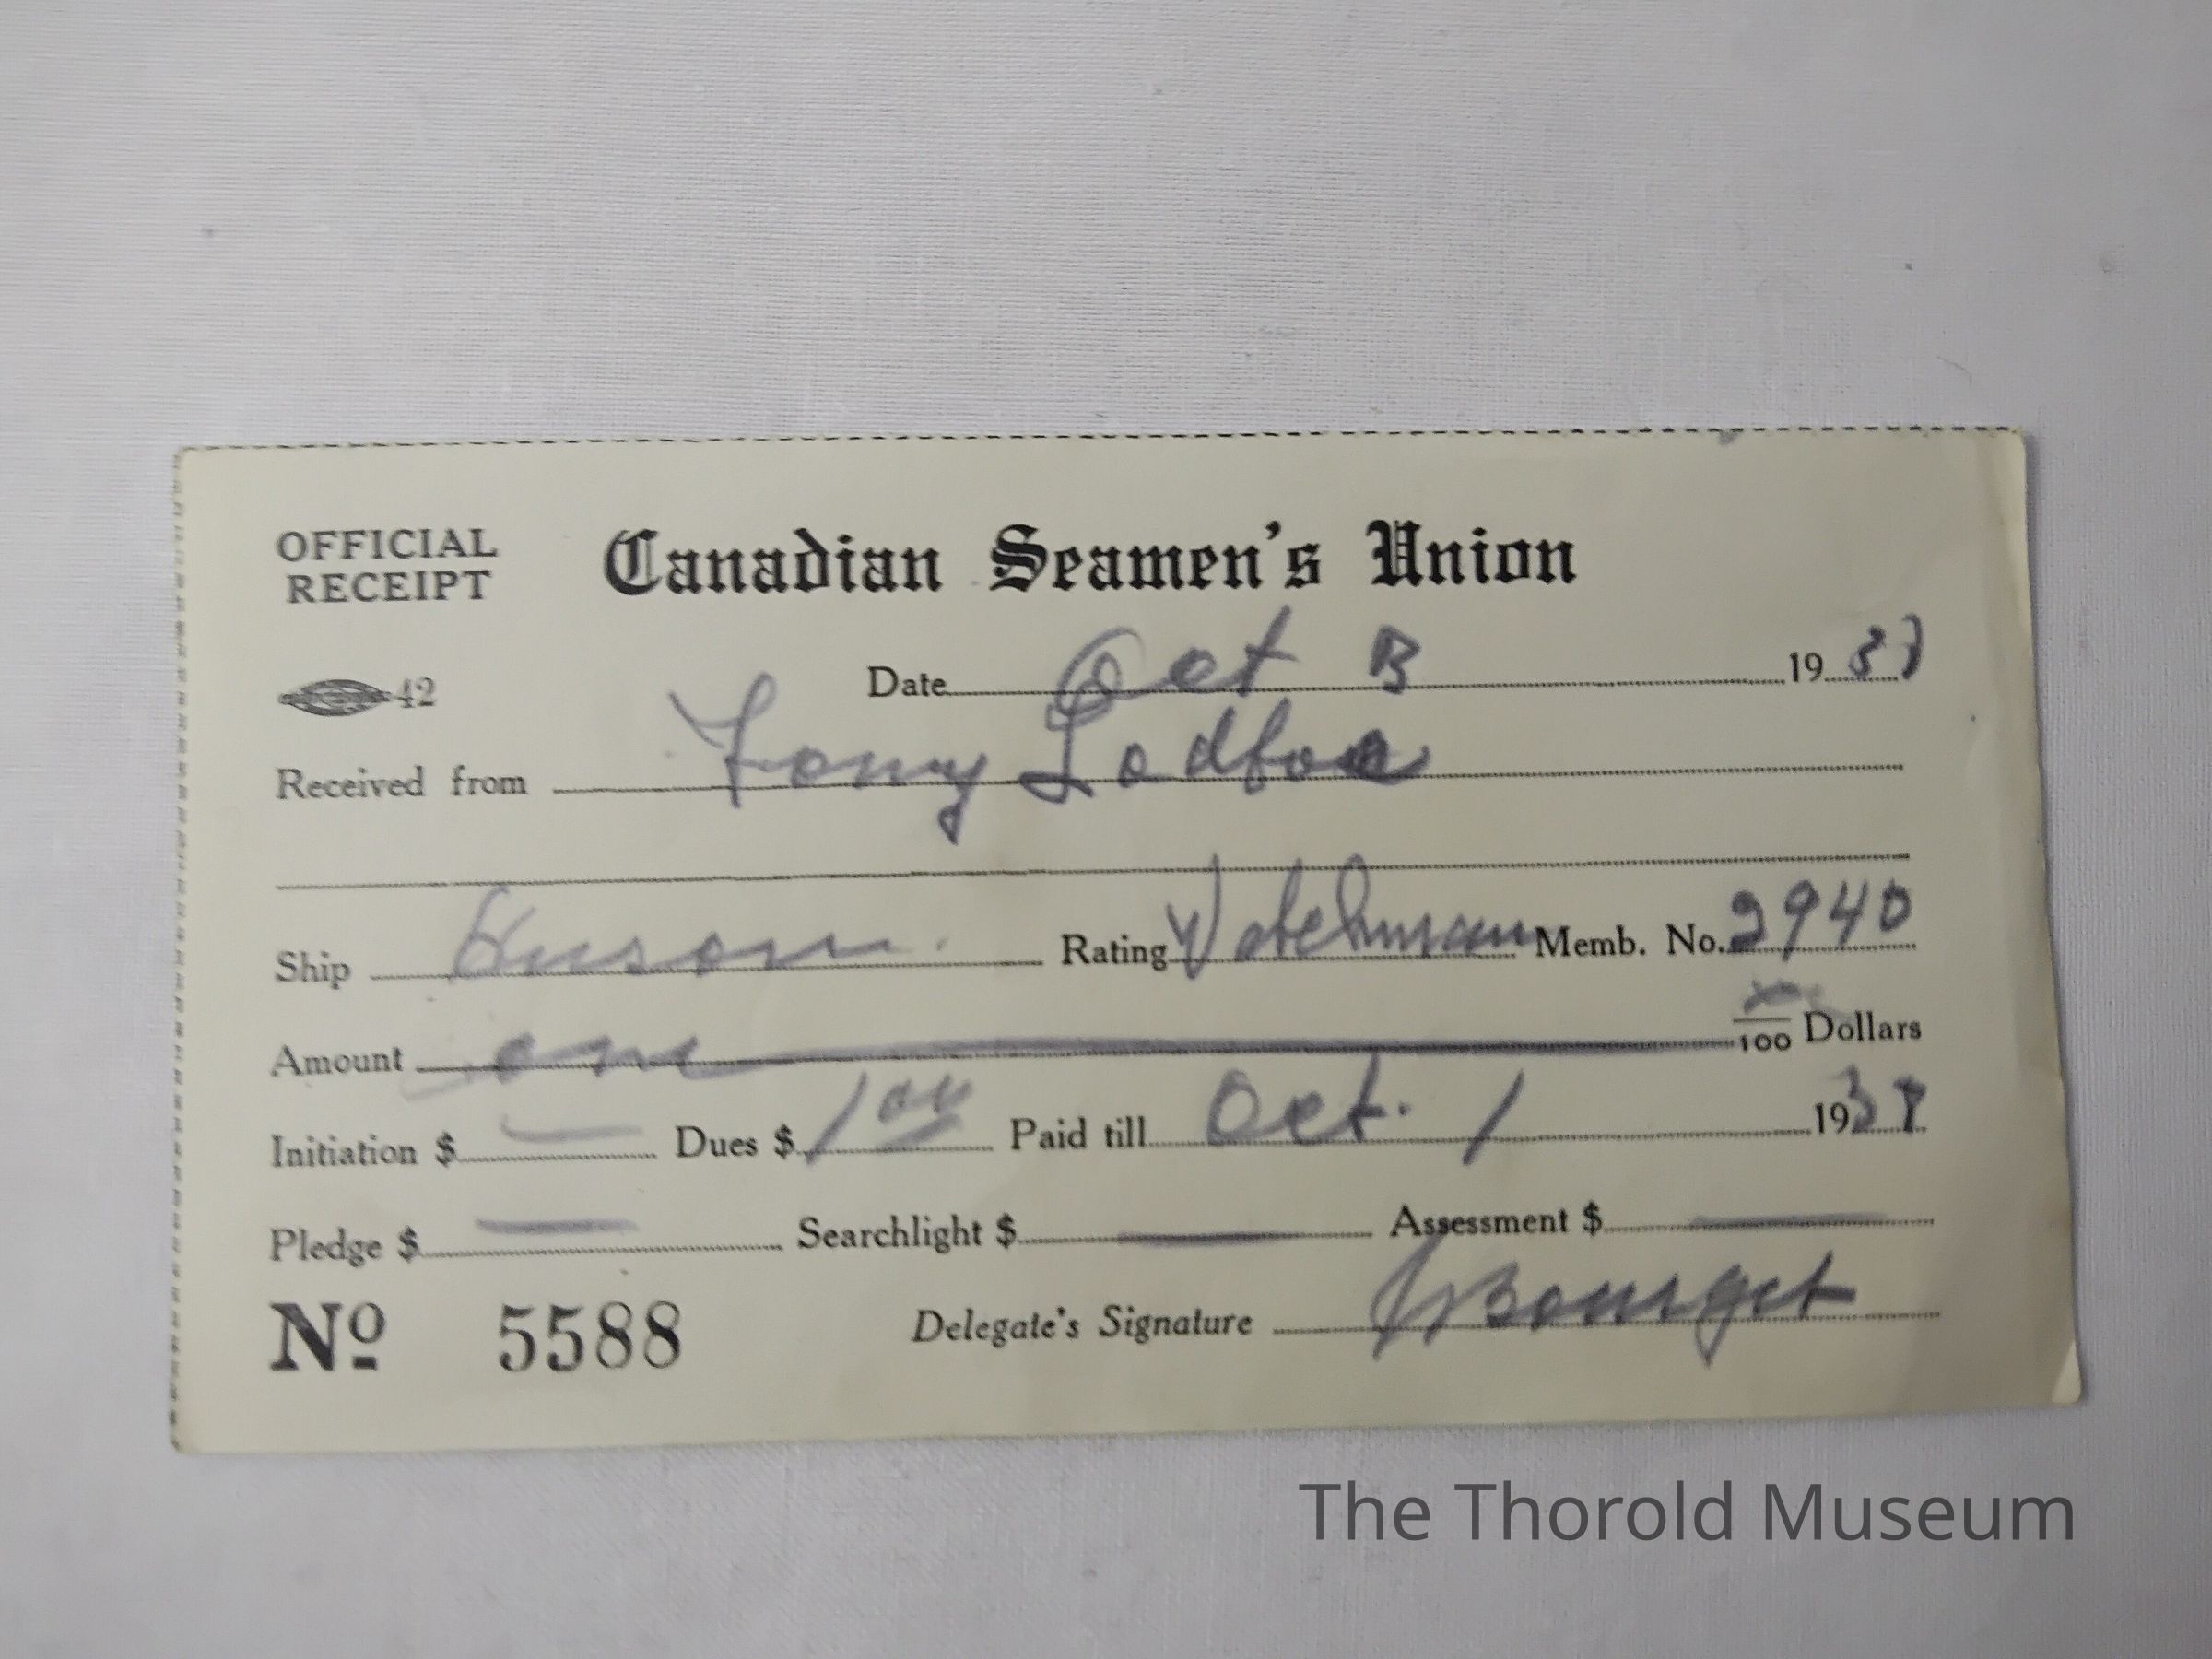 OFFICIAL RECEIPT
Canadian Seamen's Union
42
Date Oct 1937
Received from Tony
Ship Rating Watchman Memb. No. 2940
Amount one xx/100 Dollars
Initiation $ — Dues $ 1 00 Paid till Oct. 1 1937
Pledge $ — Searchlight $ — Assessment $ —
Nº 5588 Delegate's Signature Bourget
The Thorold Museum